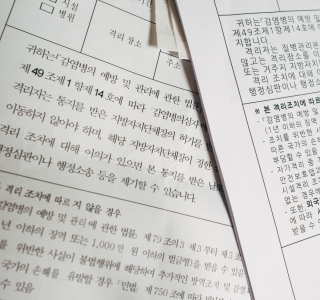 시설
병원
격리 장소
주소
귀하는「감염병의 예방 및 관리에 관한 법률」
제49조제1항제14호에 따라 감염병의심자에
격리자는 통지를 받은 지방자치단체장의 허가를
이동하지 않아야 하며, 해당 지방자치단체장이 정한
격리 조치에 대해 이의가 있으면 본 통지를 받은 날
행정심판이나 행정소송 등을 제기할 수 있습니다.
격리 조치에 따르지 않을 경우
감염병의 예방 및 관리에 관한 법률」 제79조의3 제3호부터 제5호
년 이하의 징역 또는 1,000만 원 이하의 벌금형)을 받을 수 있음
를 위반한 사실이 불법행위에 해당하여 추가적인 방역조치 및 감염
국가의 손해를 유발할 경우 「민법」 제750조에 따라
수 있음
귀하는「감염병의 예방 및
제49조제1항제14호에
지합니다.
격리자는 질병관리본
않고는 격리장소를 이
또는 거주지 지방자치
격리 조치에 대해
행정심판이나 행정소
※ 본 격리조치에 따르
-「감염병의 예방 및
(1년 이하의 징역
조치를 위반한
따른 국가의 손해
부담할 수 있음
- 자가격리 중
안전보호앱
시설격리 조
없는 경우에
- 또한, 외국
에 따라
받을 수